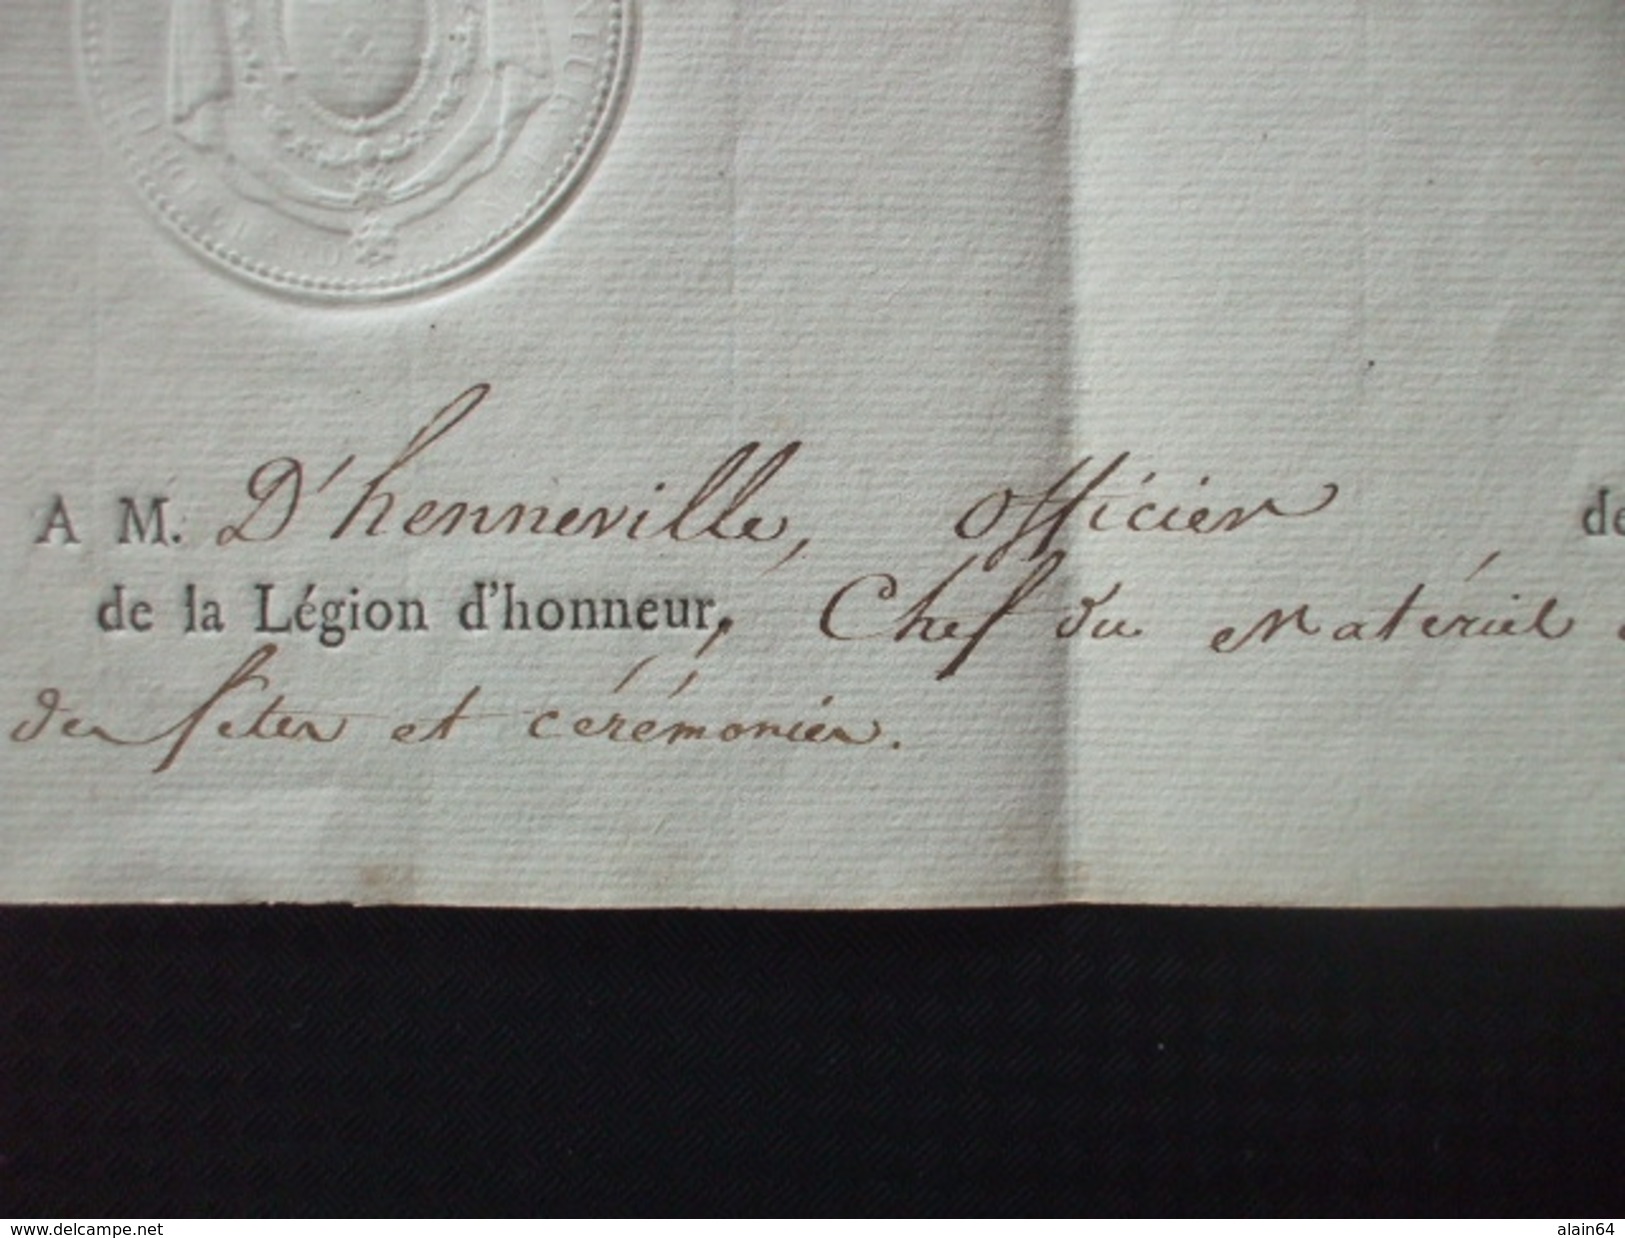 A M. D'henneville, officier de
de la Légion d'honneur, Chef du Matériel
des fêtes et cérémonies.
www.delcampe.net
alain64